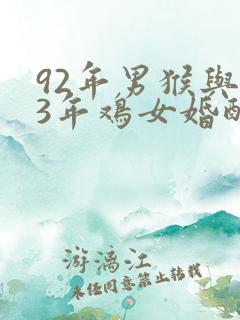 92年男猴與
3年鸡女婚配
游漓江
未经同意禁止转载